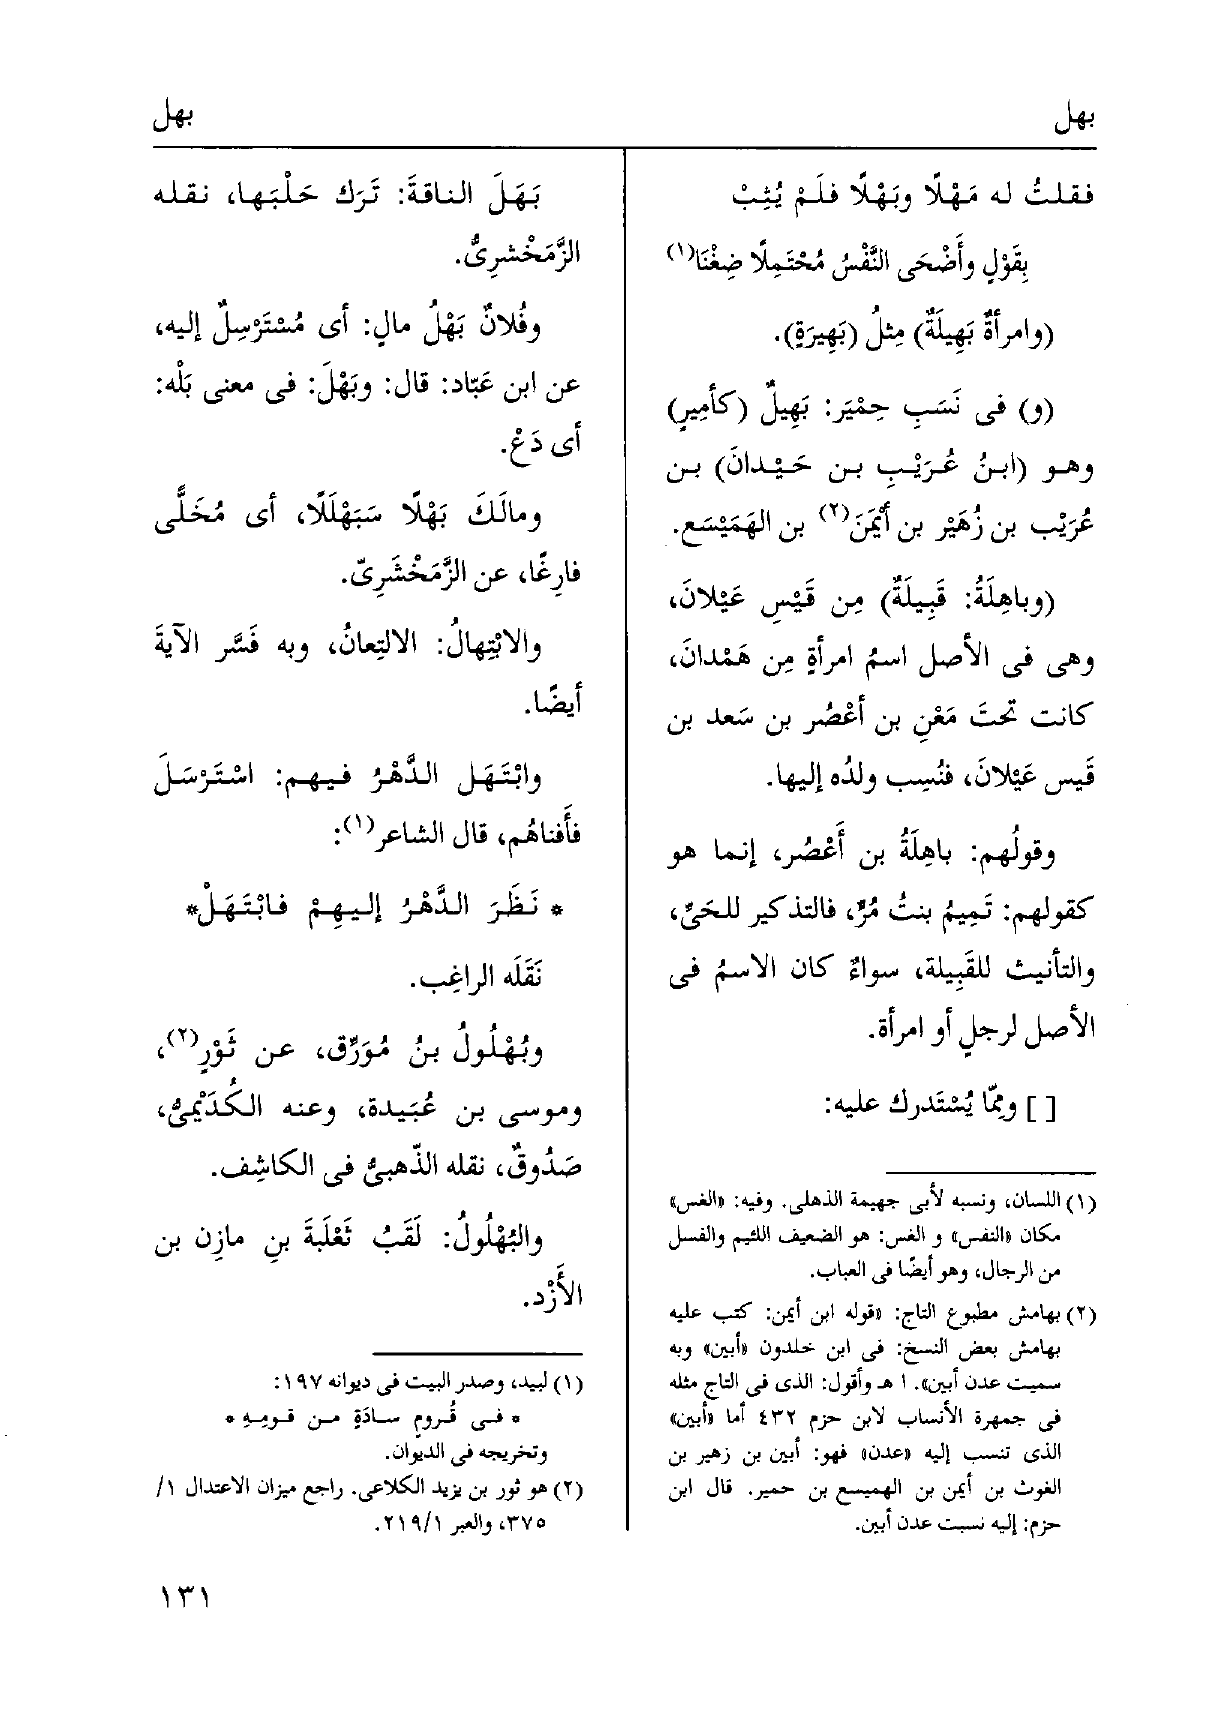 بهل
بهل
فقلتُ له مَهْلًا وبَهْلًا فلَمْ يُثِبْ
بِقَوْلٍ وأَضْحَى النَّفْسُ مُحْتَمِلًا ضِغْنَا(١)
(وامرأةٌ بَهِيلَةٌ) مِثلُ (بَهِيرَةٍ).
(و) فى نَسَبِ حِمْيَر: بَهِيلٌ (كأَمِيرٍ)
وهو (ابنُ عُرَيْبِ بن حَيْدانَ) بن
عُرَيْب بن زُهَيْر بن أَيْمَنَ(٢) بن الهَمَيْسَع.
(وباهِلَةُ: قَبِيلَةٌ) مِن قَيْسِ عَيْلانَ،
وهى فى الأصل اسمُ امرأةٍ مِن هَمْدانَ،
كانت تحتَ مَعْنِ بن أَعْصُر بن سَعد بن
قَيس عَيْلانَ، فنُسِب ولدُه إليها.
وقولُهم: باهِلَةُ بن أَعْصُر، إنما هو
كقولهم: تَمِيمُ بنتُ مُرٍّ، فالتذكير للحَىّ،
والتأنيث للقَبِيلة، سواءٌ كان الاسمُ فى
الأصل لرجلٍ أو امرأة.
[ ] وممّا يُسْتَدرك عليه:
(١) اللسان، ونسبه لأبى جهيمة الذهلى. وفيه: «الغس»
مكان «النفس» و الغس: هو الضعيف اللئيم والفسل
من الرجال، وهو أيضًا فى العباب.
(٢) بهامش مطبوع التاج: «قوله ابن أيمن: كتب عليه
بهامش بعض النسخ: فى ابن خلدون «أبين» وبه
سميت عدن أبين». ا هـ وأقول: الذى فى التاج مثله
فى جمهرة الأنساب لابن حزم ٤٣٢ أما «أبين»
الذى تنسب إليه «عدن» فهو: أبين بن زهير بن
الغوث بن أيمن بن الهميسع بن حمير. قال ابن
حزم: إليه نسبت عدن أبين.
بَهَلَ الناقةَ: تَرَك حَلْبَها، نقله
الزَّمَخْشرِىُّ.
وفُلانٌ بَهْلُ مالٍ: أى مُسْتَرْسِلٌ إليه،
عن ابن عَبّاد: قال: وبَهْلَ: فى معنى بَلْه:
أى دَعْ.
ومالَكَ بَهْلًا سَبَهْلَلًا، أى مُخَلًّى
فارِغًا، عن الزَّمَخْشَرِىّ.
والابْتِهالُ: الالتِعانُ، وبه فَسَّر الآيةَ
أيضًا.
وابْتَهَل الدَّهْرُ فيهم: اسْتَرْسَلَ
فأَفناهُم، قال الشاعر(١):
* نَظَرَ الدَّهْرُ إليهِمْ فابْتَهَلْ*
نَقَلَه الراغِب.
وبُهْلُولُ بنُ مُوَرِّق، عن ثَوْرٍ(٢)،
وموسى بن عُبَيدة، وعنه الكُدَيْمِىُّ،
صَدُوقٌ، نقله الذّهبىُّ فى الكاشِف.
والبُهْلُولُ: لَقَبُ ثَعْلَبَةَ بنِ مازِن بن
الأَزْد.
(١) لبيد، وصدر البيت فى ديوانه ١٩٧:
* فى قُرومٍ سادَةٍ من قومِهِ *
وتخريجه فى الديوان.
(٢) هو ثور بن يزيد الكلاعى. راجع ميزان الاعتدال ١/
٣٧٥، والعبر ٢١٩/١.
١٣١